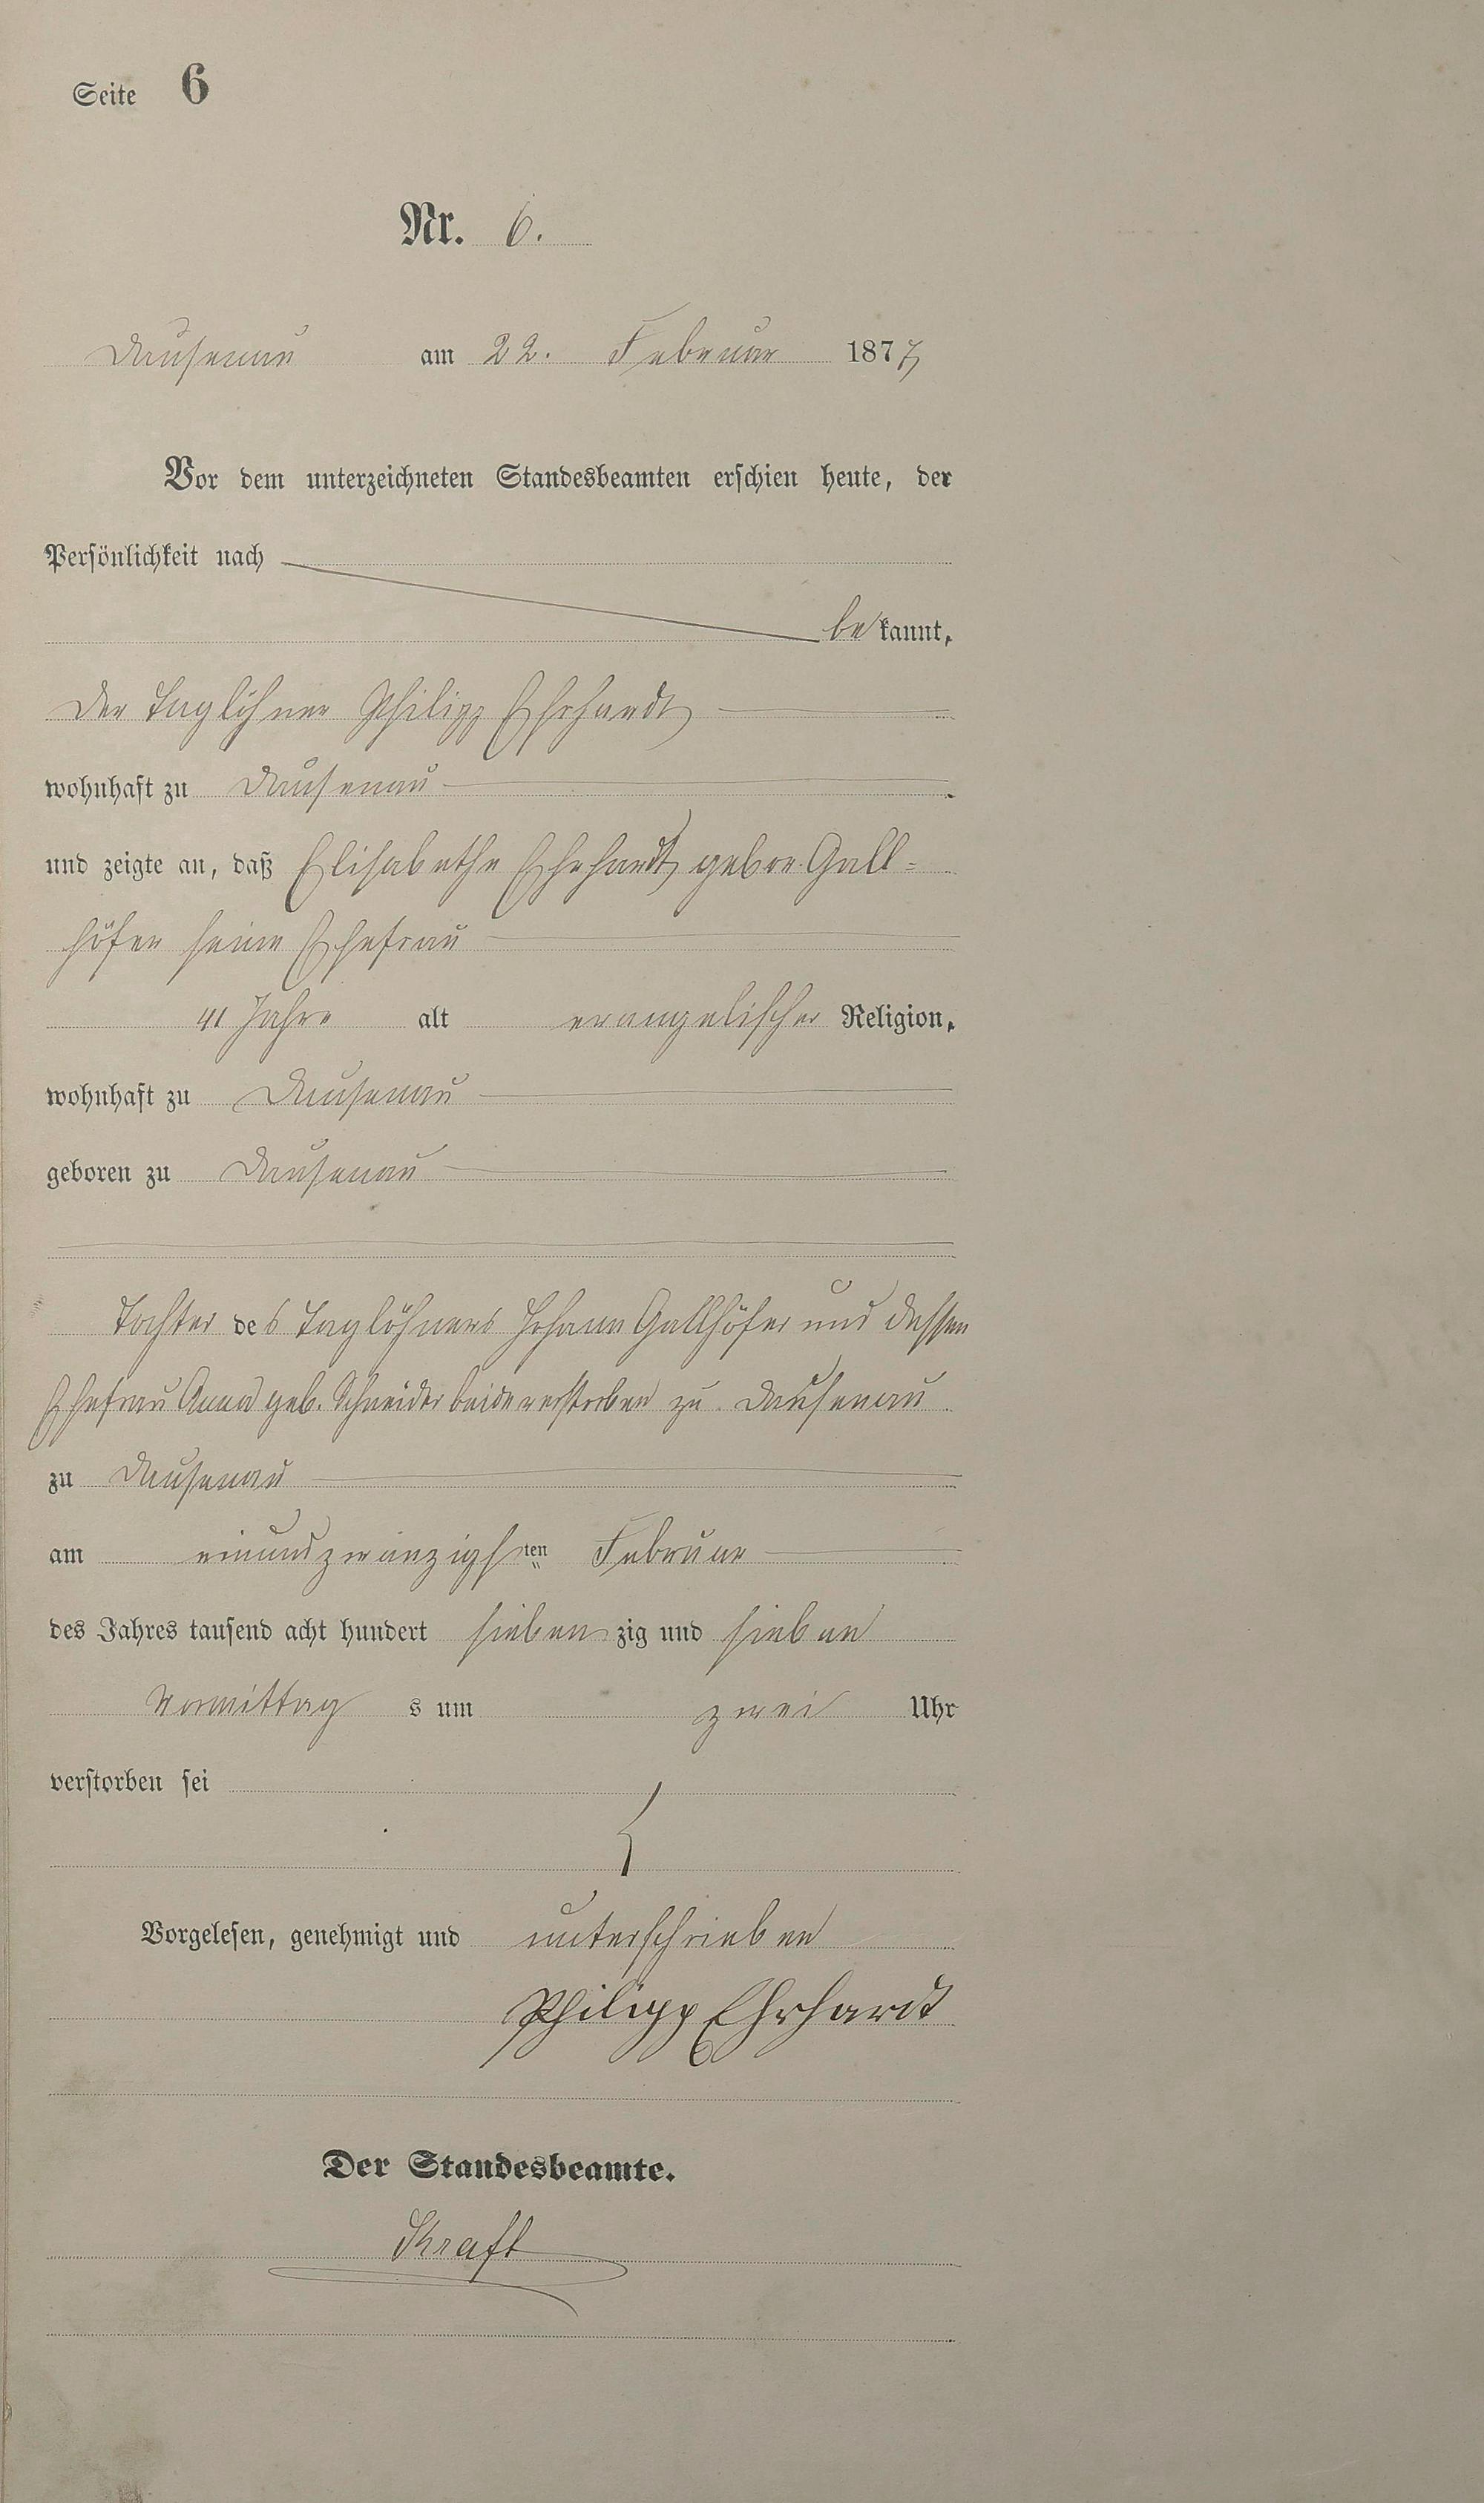 Seite 6
Nr. 6.
Dausenau am 22. Februar 1877
Vor dem unterzeichneten Standesbeamten erschien heute, der
Persönlichkeit nach
bekannt,
der Taglöhner Philipp Ehrhardt
wohnhaft zu Dausenau
und zeigte an, daß Elisabethe Ehrhardt gebor. Gall-
höfer seine Ehefrau
41 Jahre alt evangelischer Religion,
wohnhaft zu Dausenau
geboren zu Dausenau
Tochter des Taglöhners Johann Gallhöfer und dessen
Ehefrau Anna geb. Schneider beide verstorben zu Dausenau
zu Dausenau
am einundzwanzigsten Februar
des Jahres tausend acht hundert siebenzig und sieben
Vormittags um zwei Uhr
verstorben sei
Vorgelesen, genehmigt und unterschrieben
Philipp Ehrhardt
Der Standesbeamte.
Kraft